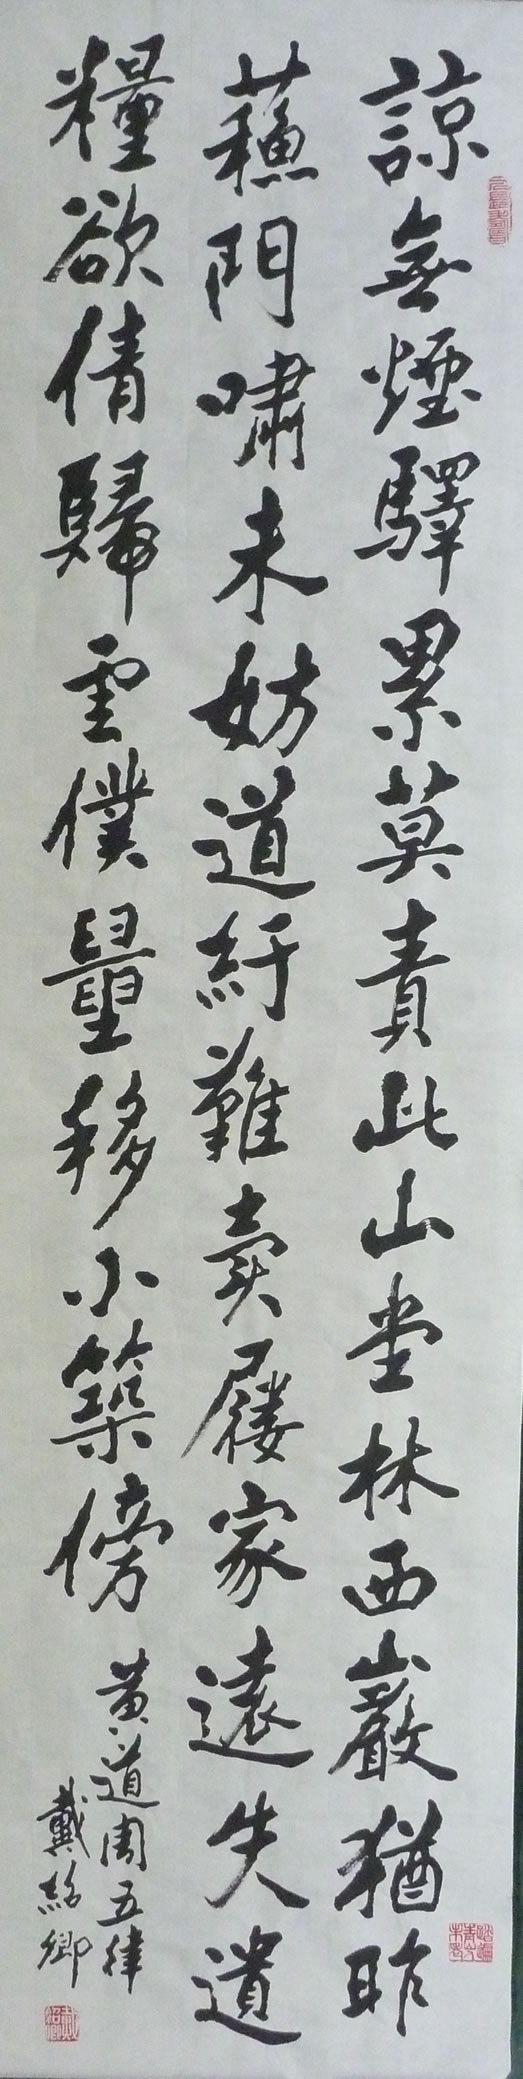 諒無煙驛累莫責此山堂林西巖猶昨
蘓門嘯未妨道紆難賣屨家遠失遺
糧欲倩歸雲僕量移小築傍
黃道周五律
戴紹卿